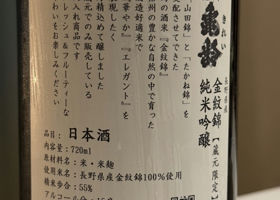 きれい
亀齢
長野県産
金紋錦【蔵元限定】
純米吟醸
山田錦』と『たかね錦』を
交配させてできた
の酒米『金紋錦』
州の豊かな自然の中で育った
造好適米で
込めて醸しました
華やか』『エレガント』を
元でのみ販売している
入れ商品です
レッシュ&フルーティーな
わいをお楽しみください
品目：日本酒
内容量：720ml
原材料：米・米麹
原料米：長野県産金紋錦100%使用
精米歩合：55%
アルコール分：